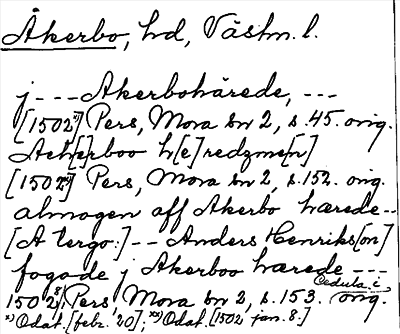 Åkerbo, hd, Västm. l.
j --- Akerbohärede, ---
[1502*)] Pers, Mora br 2, s. 45. orig.
Acth[e]rboo h[e]redzme[n]
[1502**)] Pers, Mora br 2, s. 152. orig.
almogen aff Akerbo hærede--
[A tergo:] -- Anders Henriks[on]
fogade j Akerboo hærede ---
Cedula i
1502 8/1 Pers Mora br 2, s. 153. orig.
*) Odat. [febr. 20]; **) Odat. [1502 jan. 8.]